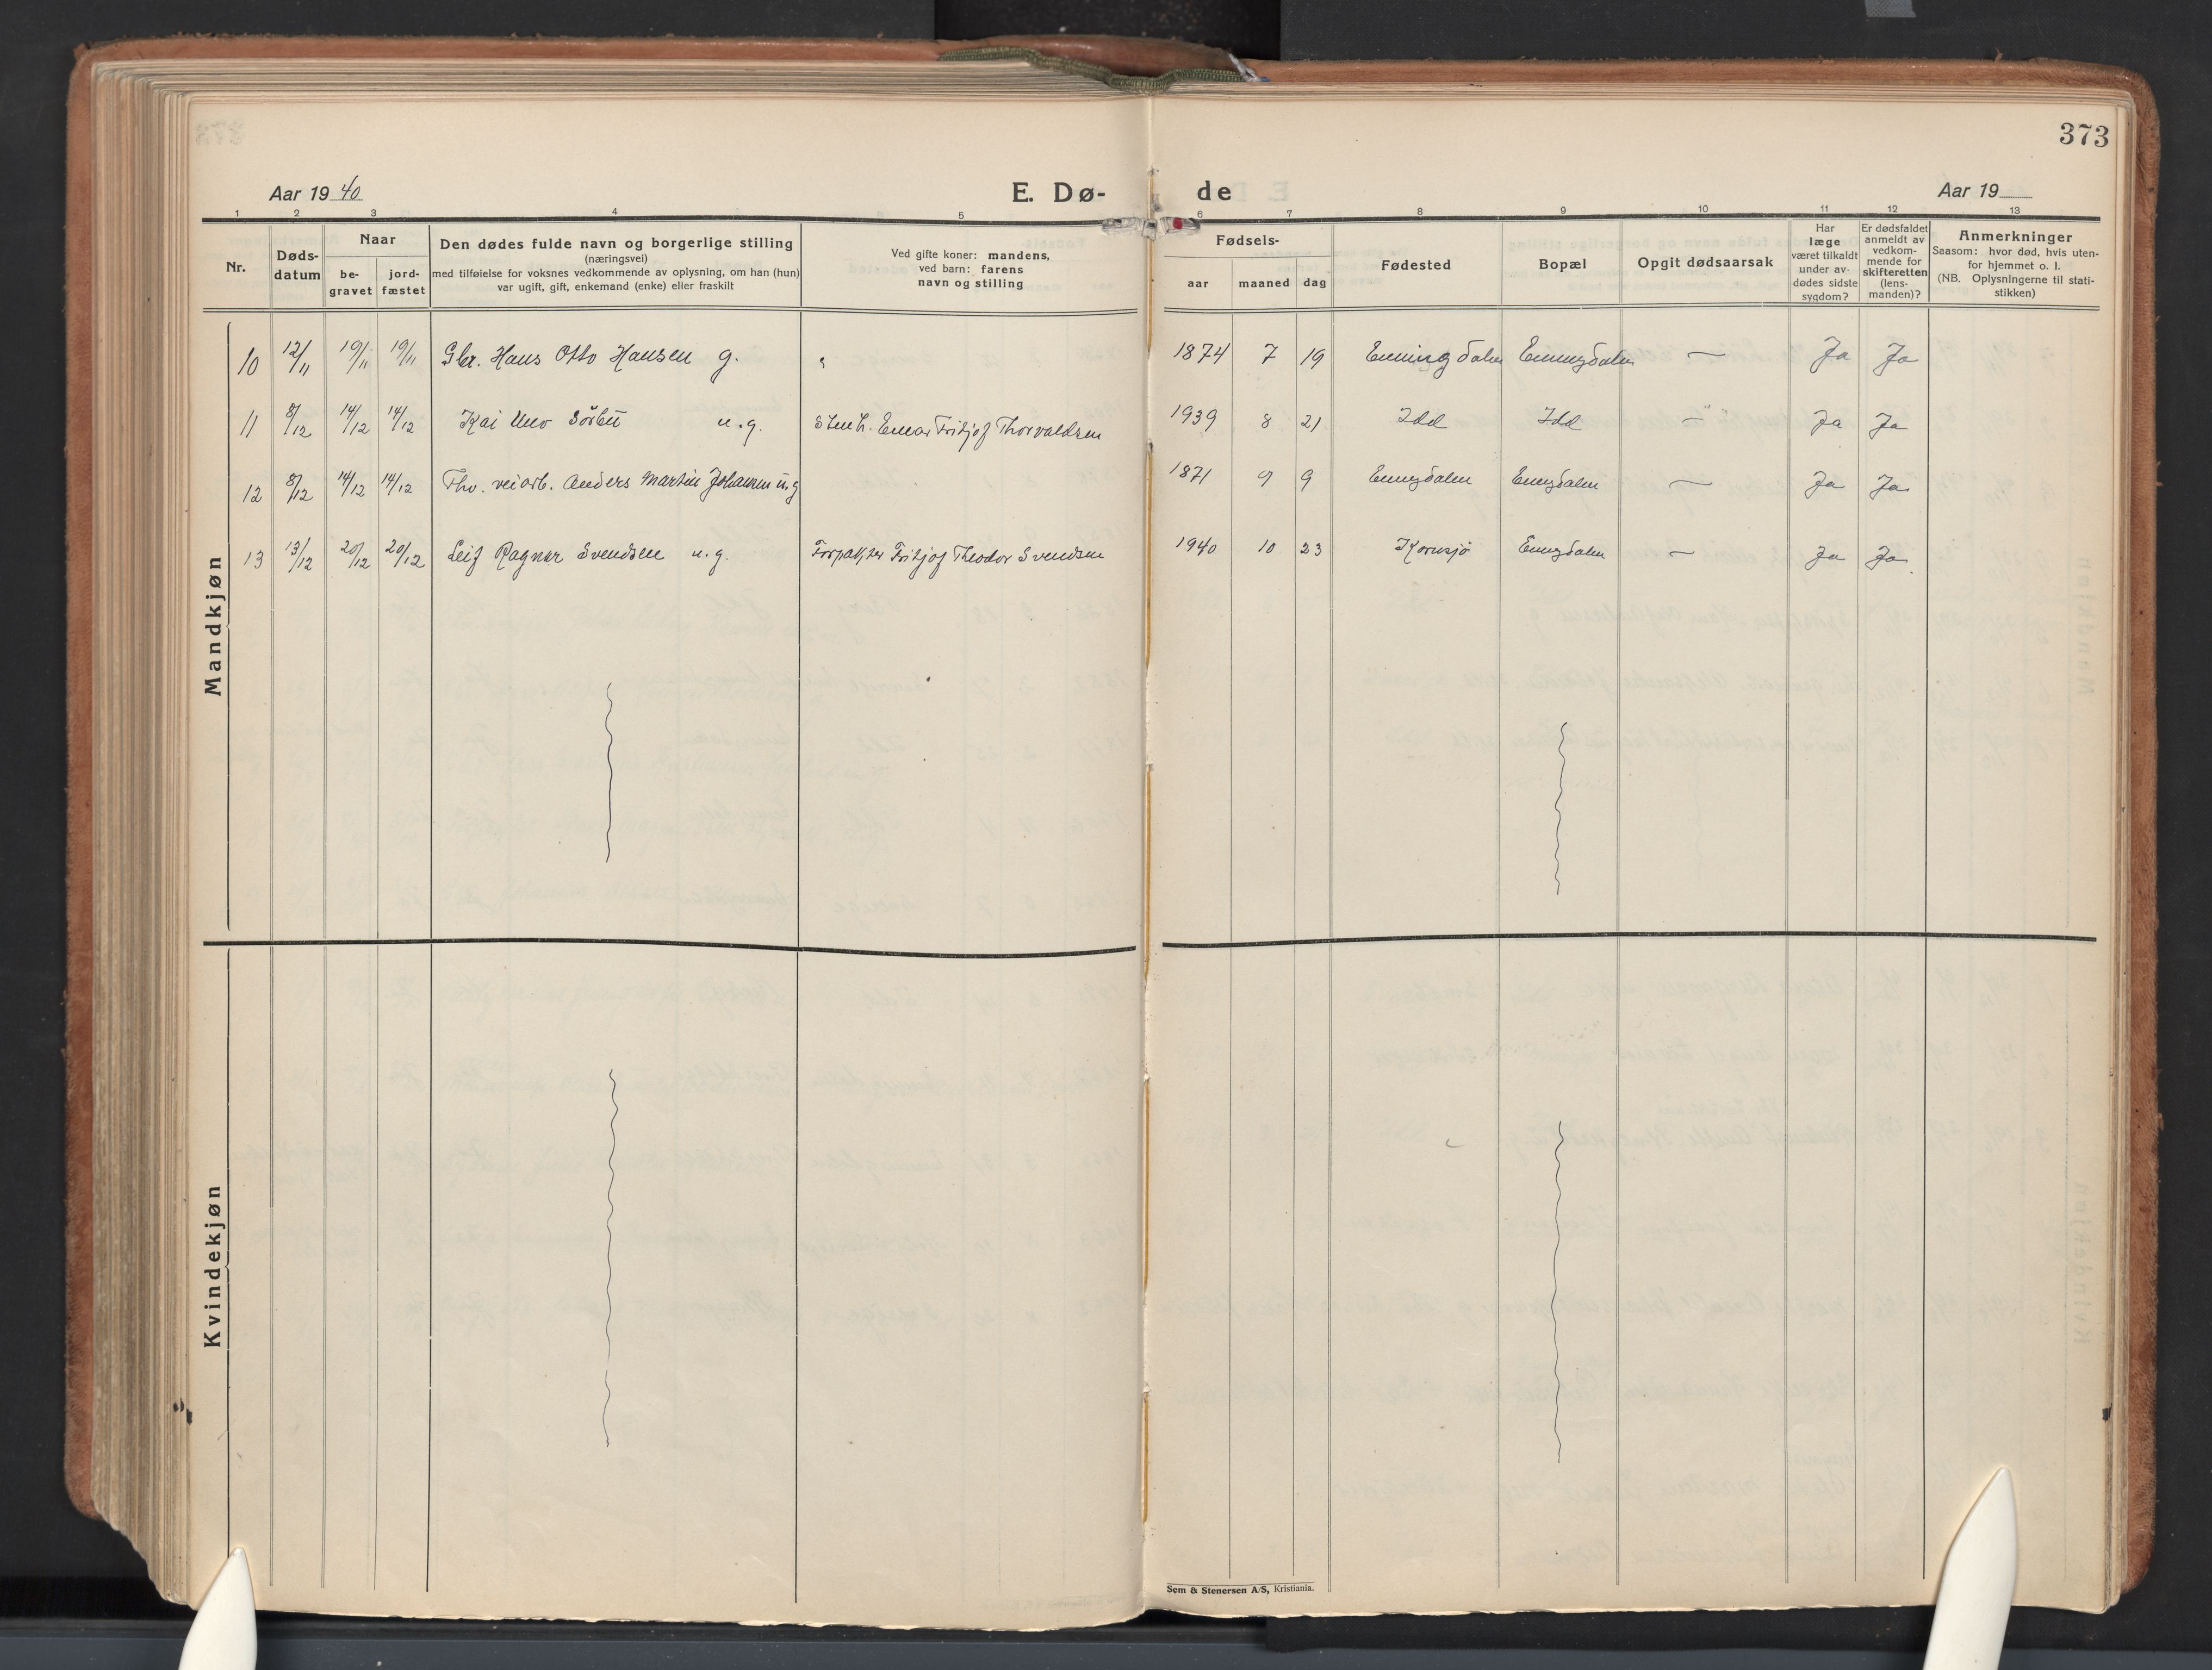 373
Aar 19 40
E. Dø-
de
Aar 19
1 2 3 4 5 6 7 8 9 10 11 12 13
Nr.
Døds-
datum
Naar
be-
gravet
jord-
fæstet
Den dødes fulde navn og borgerlige stilling
(næringsvei)
med tilføielse for voksnes vedkommende av oplysning, om han (hun)
var ugift, gift, enkemand (enke) eller fraskilt
Ved gifte koner: mandens,
ved barn: farens
navn og stilling
Fødsels-
aar maaned dag
Fødested
Bopæl
Opgit dødsaarsak
Har
læge
været tilkaldt
under av-
dødes sidste
sygdom?
Er dødsfaldet
anmeldt av
vedkom-
mende for
skifteretten
(lens-
manden)?
Anmerkninger
Saasom: hvor død, hvis uten-
for hjemmet o. l.
(NB. Oplysningerne til stati-
stikken)
Mandkjøn
10 12/11 19/11 19/11 Gbr. Hans Otto Hansen g. " 1874 7 19 Enningdalen Enningdalen — Ja Ja
11 8/12 14/12 14/12 Kai Uno Sörbü u.g. Stenh. Einar Fritjof Thorvaldsen 1939 8 21 Idd Idd — Ja Ja
12 8/12 14/12 14/12 Fhv. veiarb. Anders Martin Johansen u.g 1871 9 9 Enningdalen Enningdalen — Ja Ja
13 13/12 20/12 20/12 Leif Ragnar Svendsen u.g. Forpakter Fritjof Theodor Svendsen 1940 10 23 Kornsjø Enningdalen — Ja Ja
Kvindekjøn
Sem & Stenersen A/S, Kristiania.